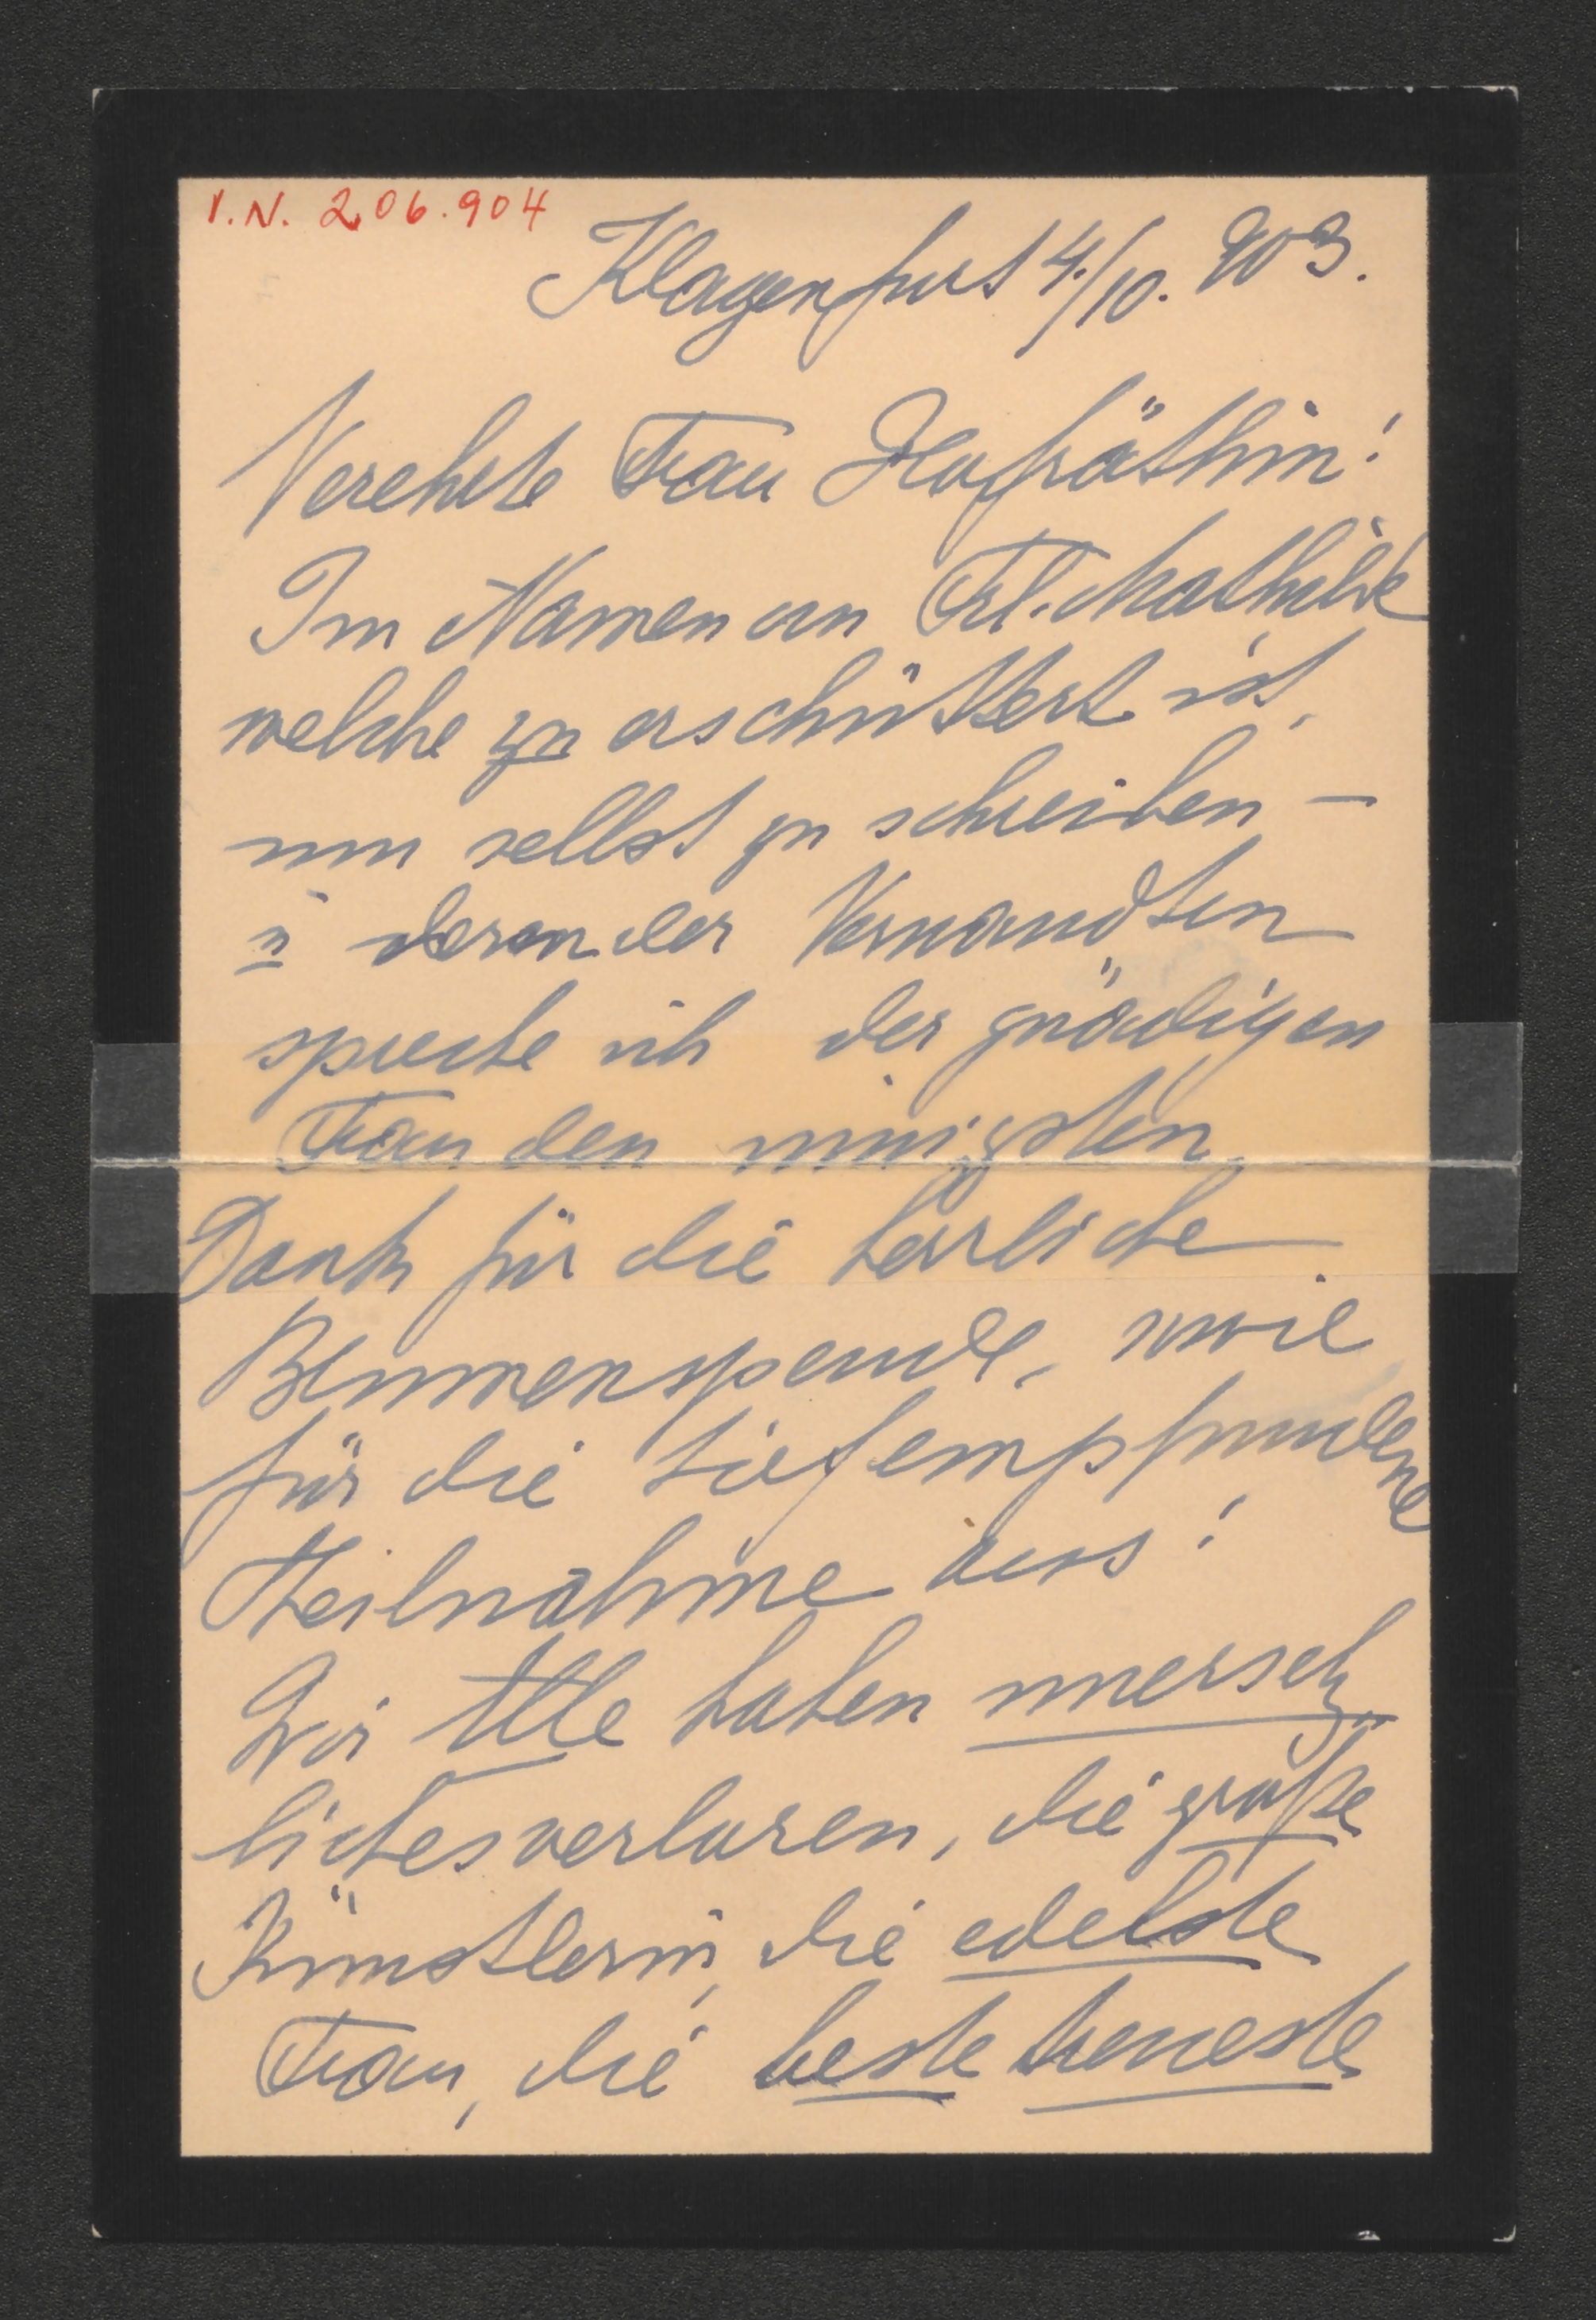 I.N. 206.904
Klagenfurt 4./10. 903.
Verehrte Frau Hofräthin!
Im Namen an Frl. Mathilde
welche zu erschüttert ist,
um selbst zu schreiben –
u deren der Verwandten
spreche ich der gnädigen
Frau den innigsten
Dank für die herrliche
Blumenspende, sowie
für die tiefempfundene
Theilnahme aus!
Wir Alle haben unersetz
liches verloren, die große
Künstlerin, die edelste
Frau, die beste treueste